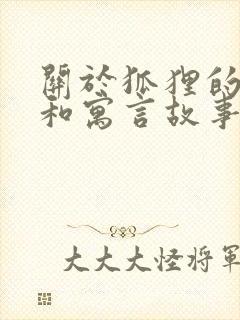 關於狐狸的
和寓言故事
大大大怪将軍